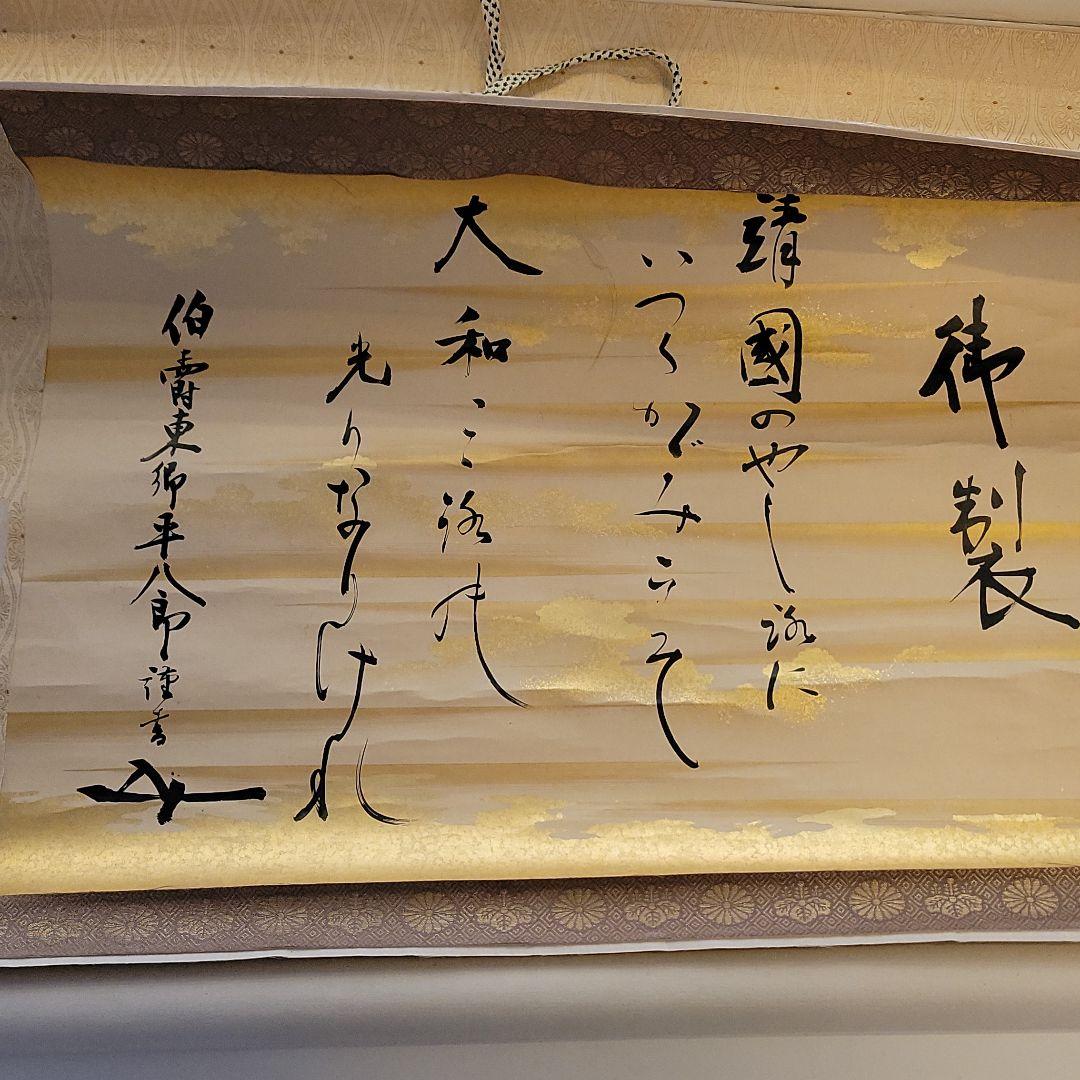 御製
靖國のやし路に
いつくかゞみこそ
大和ここ路の
光りなりけれ
伯爵東郷平八郎謹書